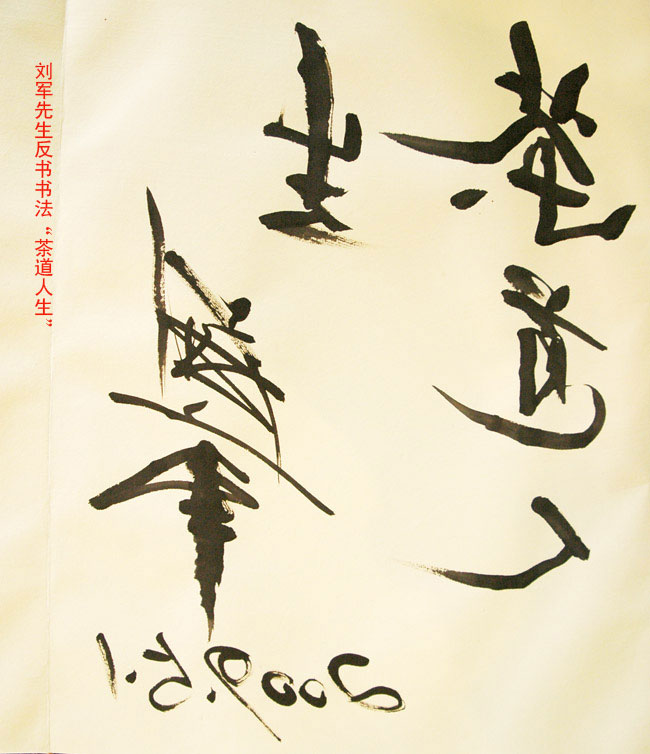 茶道人
生
2009.5.1
刘军先生反书书法“茶道人生”